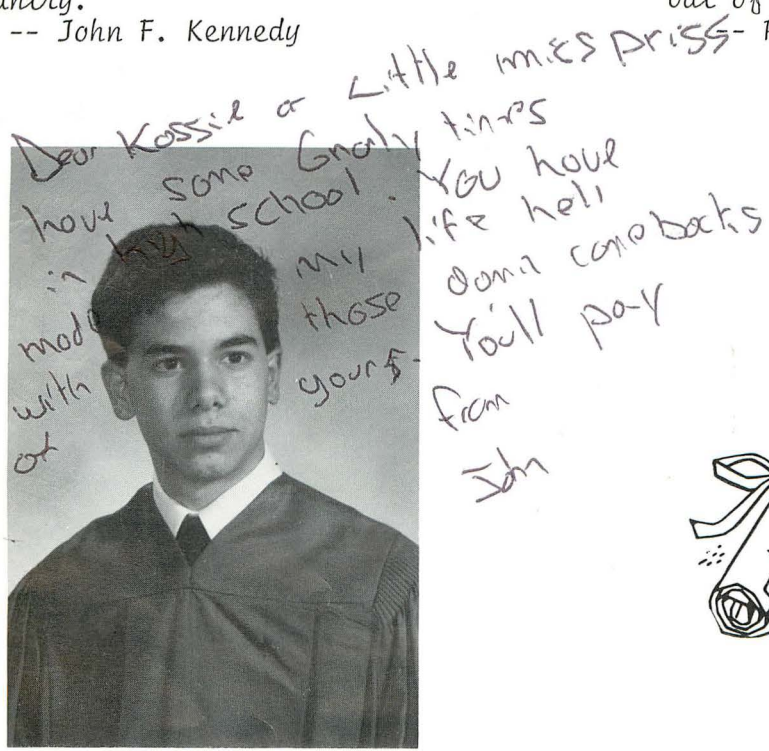 -- John F. Kennedy
out of
Dear Kossie or Little miss priss
have some Gnarly times
in high school. You have
made my life hell
with those damn comebacks
of yours- You'll pay
from
John